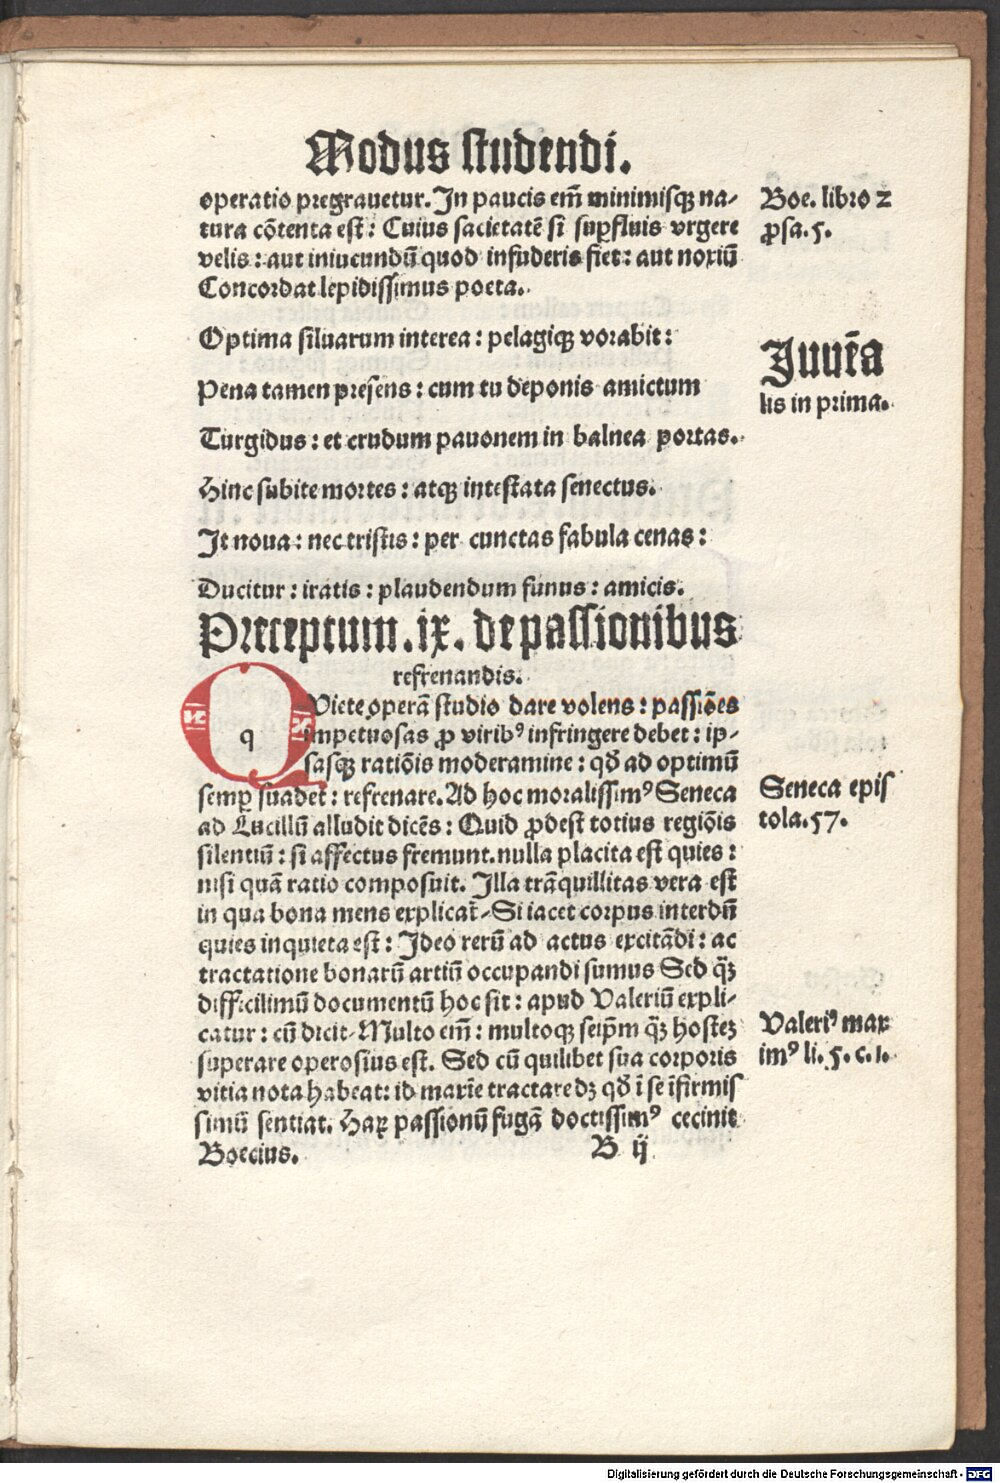 Modus studendi.
operatio pregrauetur. In paucis em̄ minimisqꝫ na-
tura cōtenta est: Cuius sacietatē si suꝑfluis vrgere
velis: aut iniucundū quod infuderis fiet: aut noxiū
Concordat lepidissimus poeta.
Boe. libro 2
ꝓsa. 5.
Optima siluarum interea: pelagiqꝫ vorabit:
Pena tamen presens: cum tu deponis amictum
Turgidus: et crudum pauonem in balnea portas.
Hinc subite mortes: atqꝫ intestata senectus.
It noua: nec tristis: per cunctas fabula cenas:
Ducitur: iratis: plaudendum funus: amicis.
Juuēa
lis in prima.
Preceptum. ix. de passionibus
refrenandis.
q
Viete operā studio dare volens: passiōes
impetuosas ꝓ viribꝰ infringere debet: ip-
sasqꝫ ratiōis moderamine: qđ ad optimū
semꝑ suadet: refrenare. Ad hoc moralissimꝰ Seneca
ad Lucillū alludit dicēs: Quid ꝓdest totius regiōis
silentiū: si affectus fremunt. nulla placita est quies:
nisi quā ratio composuit. Illa trāquillitas vera est
in qua bona mens explicat̄- Si iacet corpus interdū
quies inquieta est: Ideo rerū ad actus excitādi: ac
tractatione bonarū artiū occupandi sumus Sed qꝫ̄
difficilimū documentū hoc sit: apud Valeriū expli-
catur: cū dicit- Multo em̄: multoqꝫ seip̄m qꝫ̄ hosteꝫ
superare operosius est. Sed cū quilibet sua corporis
vitia nota habeat: id maxīe tractare dꝫ qđ ī se īfirmis
simū sentiat. Haꝝ passionū fugā doctissimꝰ cecinit
Boecius.
B ij
Seneca epis
tola. 57.
Valeriꝰ max
imꝰ li. 5. c. 1.
Digitalisierung gefördert durch die Deutsche Forschungsgemeinschaft - DFG